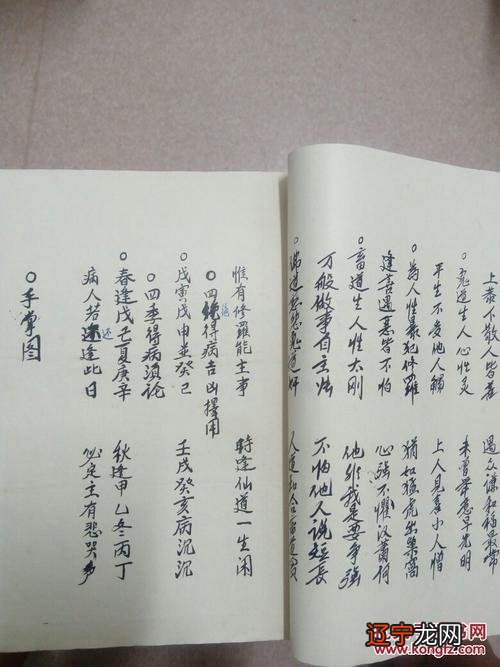 上恭下敬人皆喜 遇众谦和福最常
○鬼道生人心性灵
平生不受他人触 上人见喜小人憎
○为人性暴犯修罗 犹如猛虎出窠窝
逢善遇恶皆不怕 心强不惧汉萧何
○畜道生人性太刚 他非我是要争强
万般做事自主张 不怕他人说短长
惟有修罗能主事 时逢仙道一生闲
○四 得病吉凶择用
戊寅戊申并癸巳 壬戌癸亥病沉沉
○四季得病须论
春逢戊己夏庚辛 秋逢甲乙冬丙丁
病人若还逢此日 必定主有悲哭声
○手掌图
辽宁龙网
www.kongfz.com